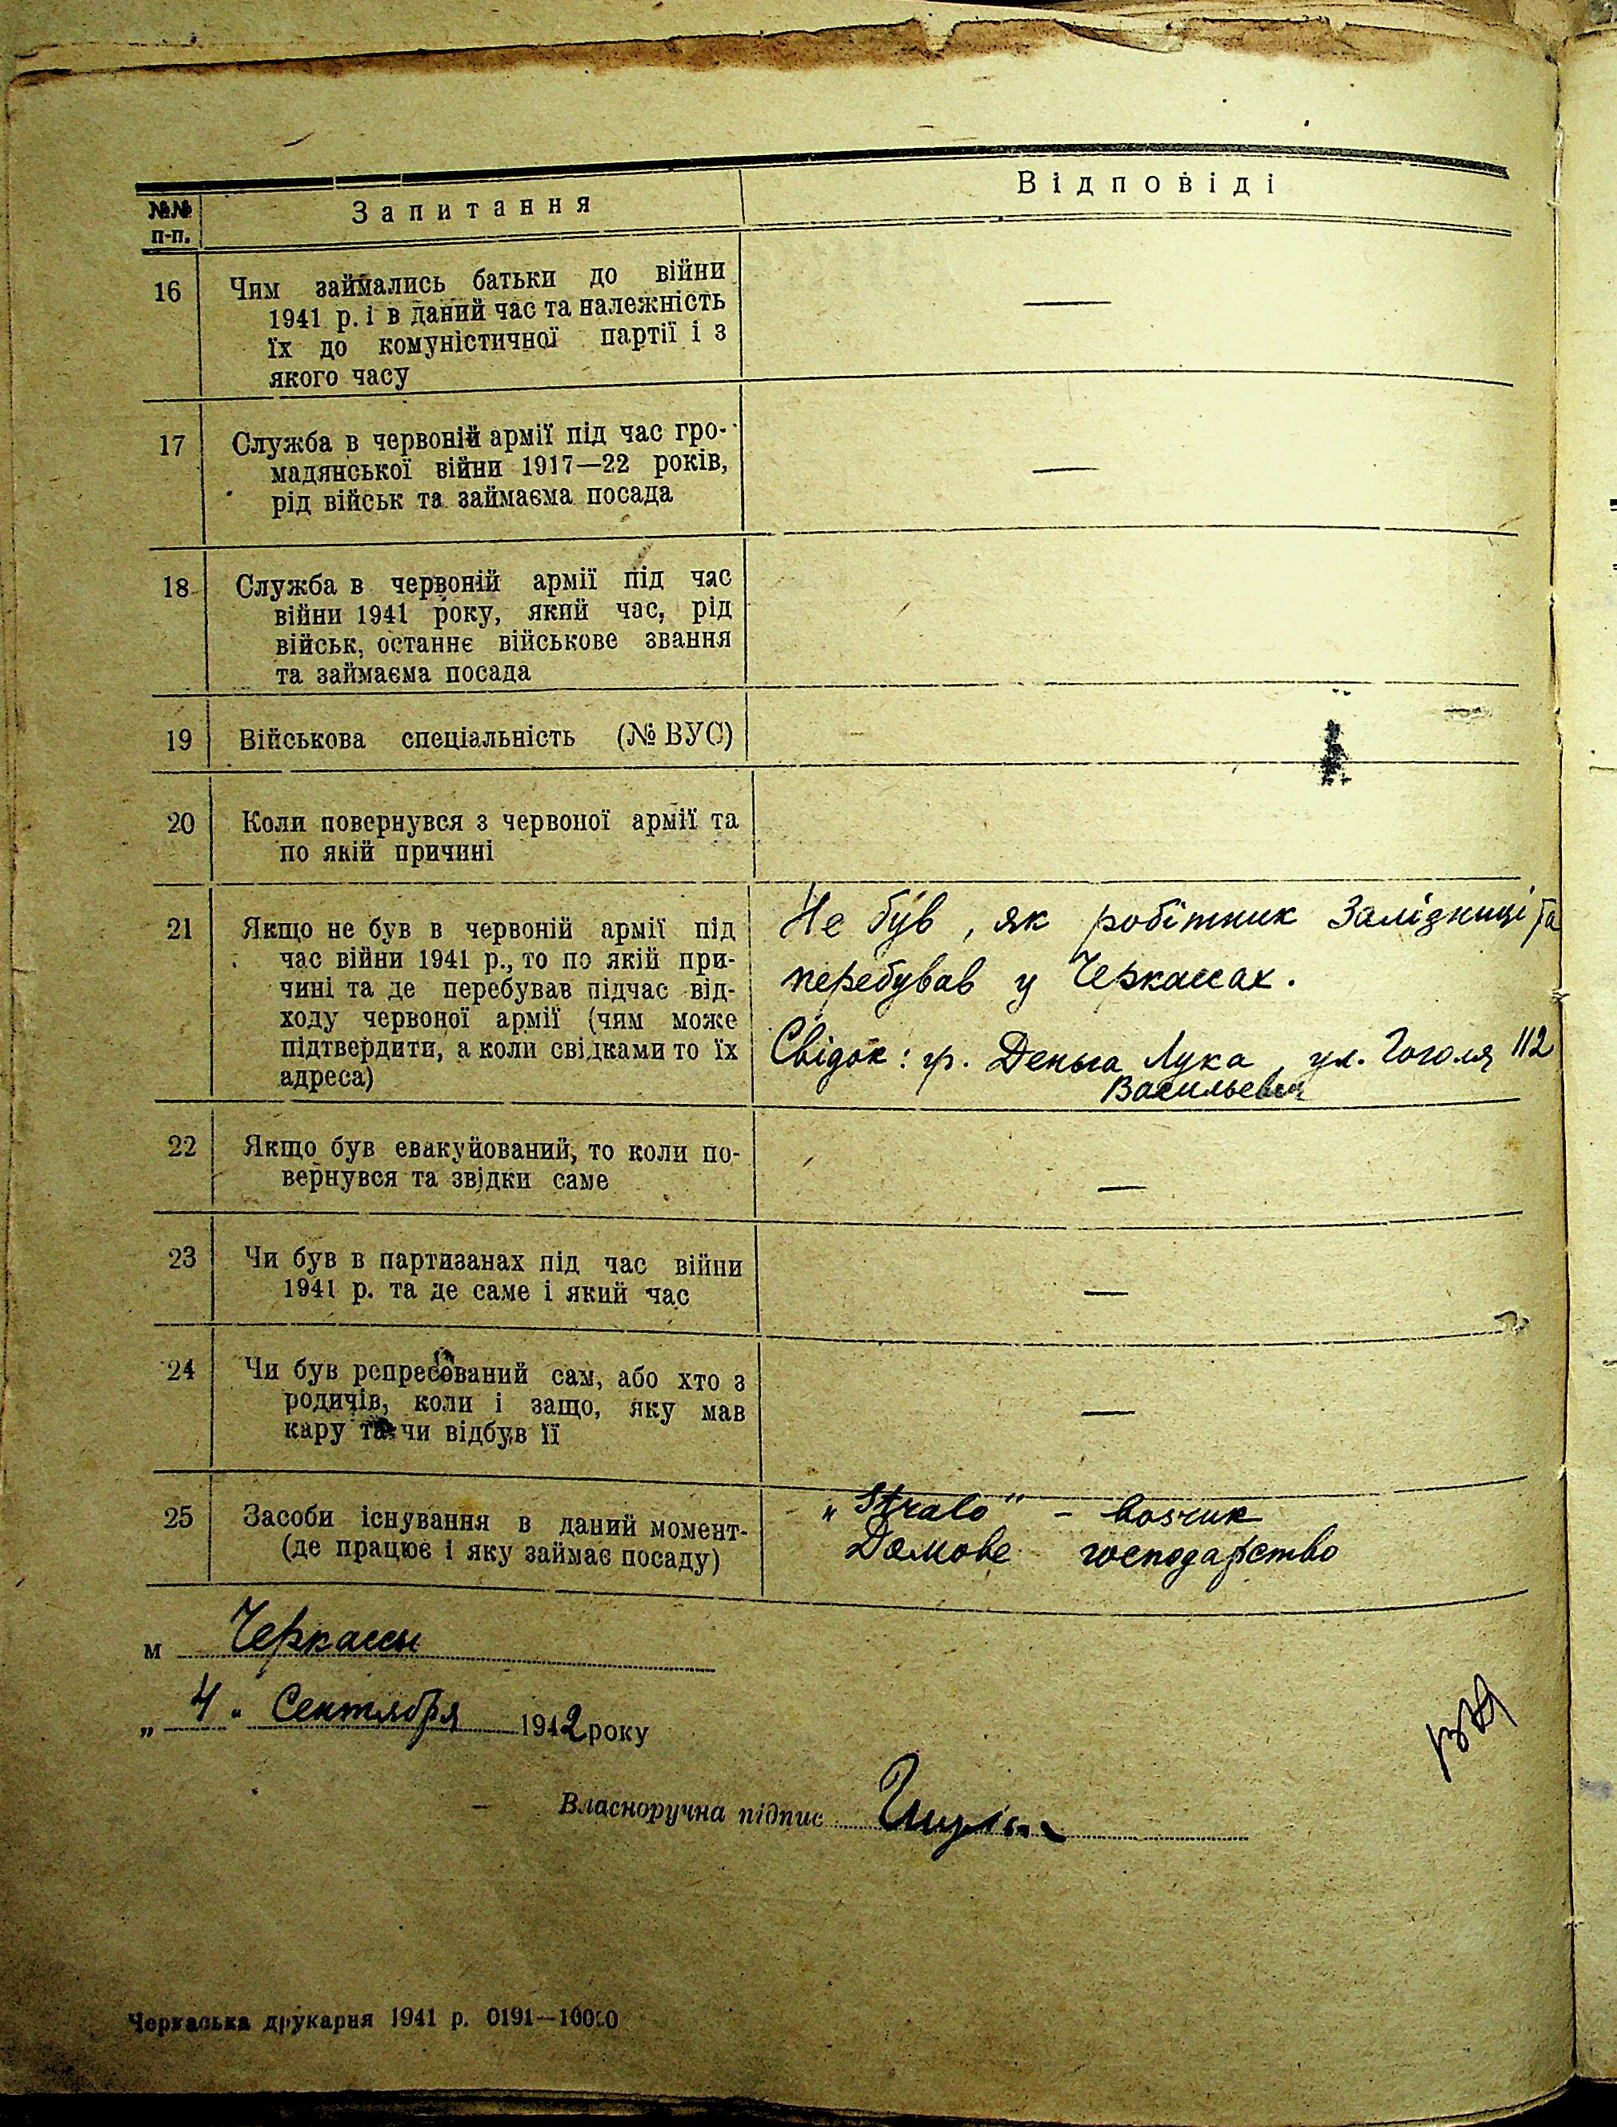 №№ п-п.
Запитання
Відповіді
16
Чим займались батьки до війни
1941 р. і в даний час та належність
їх до комуністичної партії і з
якого часу
—
17
Служба в червоній армії під час гро-
мадянської війни 1917—22 років,
рід військ та займаєма посада
—
18
Служба в червоній армії під час
війни 1941 року, який час, рід
військ, останнє військове звання
та займаєма посада
19
Військова спеціальність (№ ВУС)
20
Коли повернувся з червоної армії та
по якій причині
21
Якщо не був в червоній армії під
час війни 1941 р., то по якій при-
чині та де перебував підчас від-
ходу червоної армії (чим може
підтвердити, а коли свідками то їх
адреса)
Не був, як робітник Залізниці та
перебував у Черкассах.
Свідок: гр. Деньга Лука, ул. Гоголя 112
Васильевич
22
Якщо був евакуйований, то коли по-
вернувся та звідки саме
—
23
Чи був в партизанах під час війни
1941 р. та де саме і який час
—
24
Чи був репресований сам, або хто з
родичів, коли і защо, яку мав
кару та чи відбув її
—
25
Засоби існування в даний момент-
(де працює і яку займає посаду)
„Strabo" - возчик
Домове господарство
м Черкассы
„4" Сентября 1942 року
Власноручна підпис
Черкаська друкарня 1941 р. 0191—10000